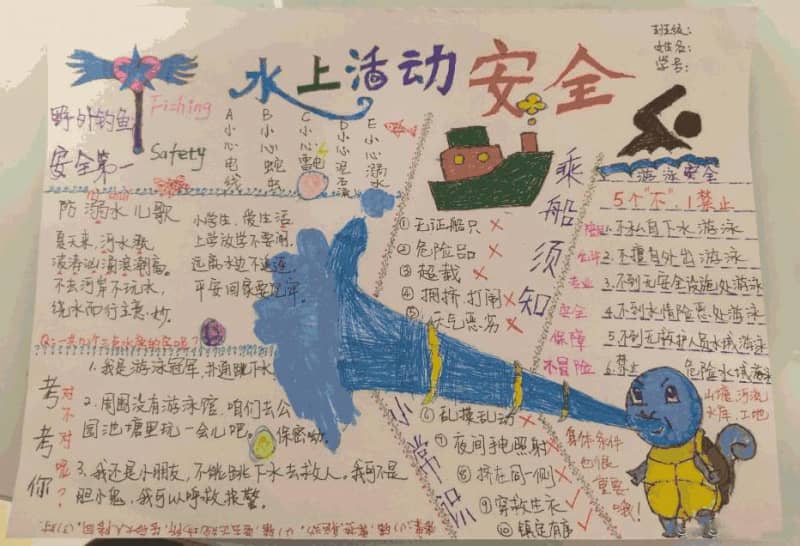 班级:
姓名:
学号:
水上活动安全
野外钓鱼
安全第一
Fishing
Safety
A小心电线
B小心蛇虫
C小心雷电
D小心泥石流
E小心溺水
防溺水儿歌
小学生,爱生活
上学放学不要闹
平安回家
不去河岸不玩水
绕水而行主意妙
考考你
对不对呢?
1.我是游泳冠军,扑通跳下水
2.周围没有游泳馆,咱们去公
园池塘里玩一会儿吧。保密呦。
3.我还是小朋友,不能跳下水去救人。我可不是
胆小鬼,我可以呼救报警。
乘船须知
小常识
①无证船只 ×
②危险品 ×
③超载 ×
④拥挤,打闹 ×
⑤天气恶劣 ×
⑥乱摸乱动 ×
⑦夜间手电照射 ×
⑧挤在同一侧 ×
⑨穿救生衣 ✓
⑩镇定有序 ✓
游泳安全
5个"不",1禁止
1.不私自下水游泳
2.不擅自外出游泳
3.不到无安全设施处游泳
4.不到水情险恶处游泳
5.不到无救护人员水域游泳
6.禁止 危险水域
山塘,河流
水库,工地
专业
安全
保障
不冒险
身体条件
也很
重要
哦!